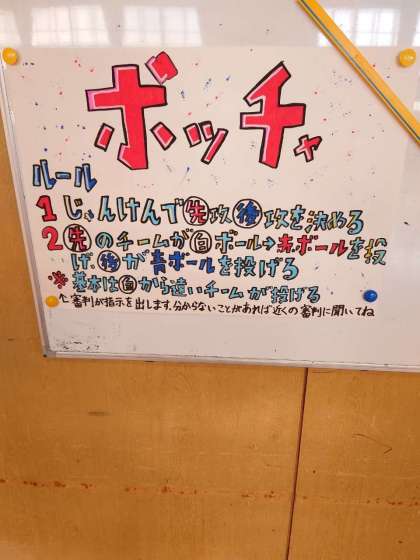 ボッチャ
ルール
1 じゃんけんで先攻後攻を決める
2 先のチームが白ボール→赤ボールを投
げ、後が青ボールを投げる
※ 基本は白から遠いチームが投げる
↑審判が指示を出します。分からないことがあれば近くの審判に聞いてね